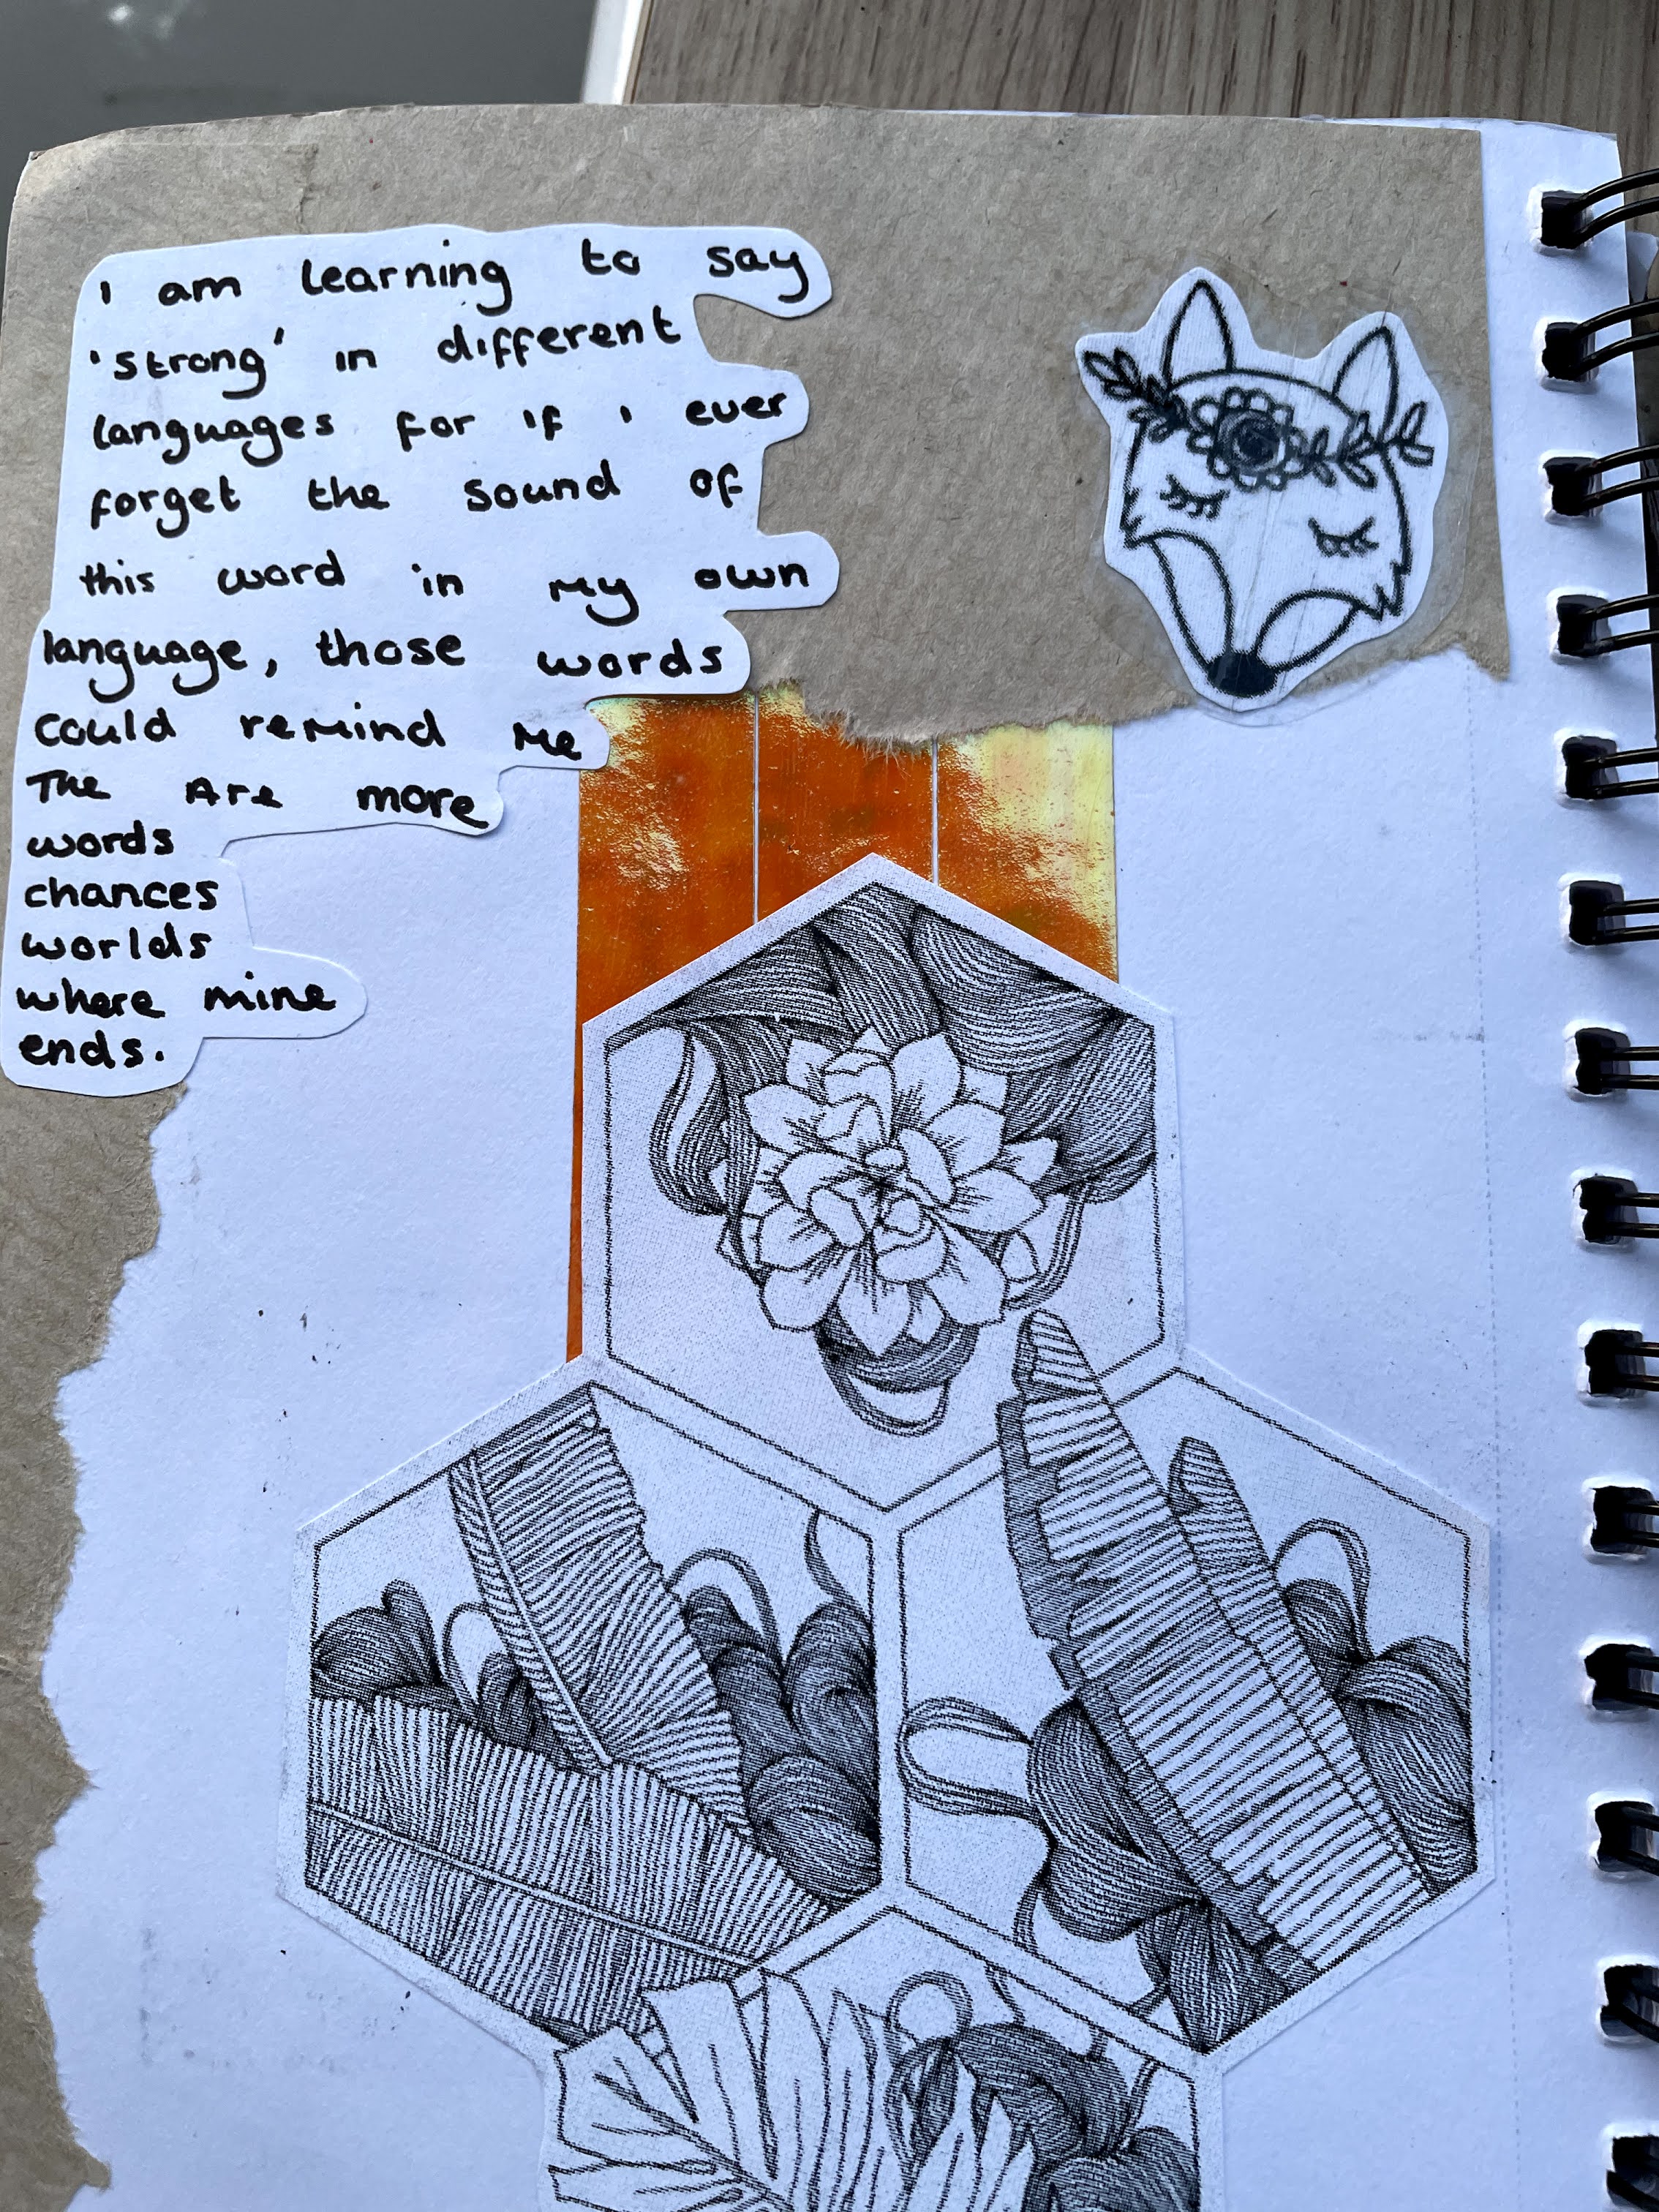 I am learning to say
'strong' in different
languages for if I ever
forget the sound of
this word in my own
language, those words
could remind me
The Are more
words
chances
worlds
where mine
ends.